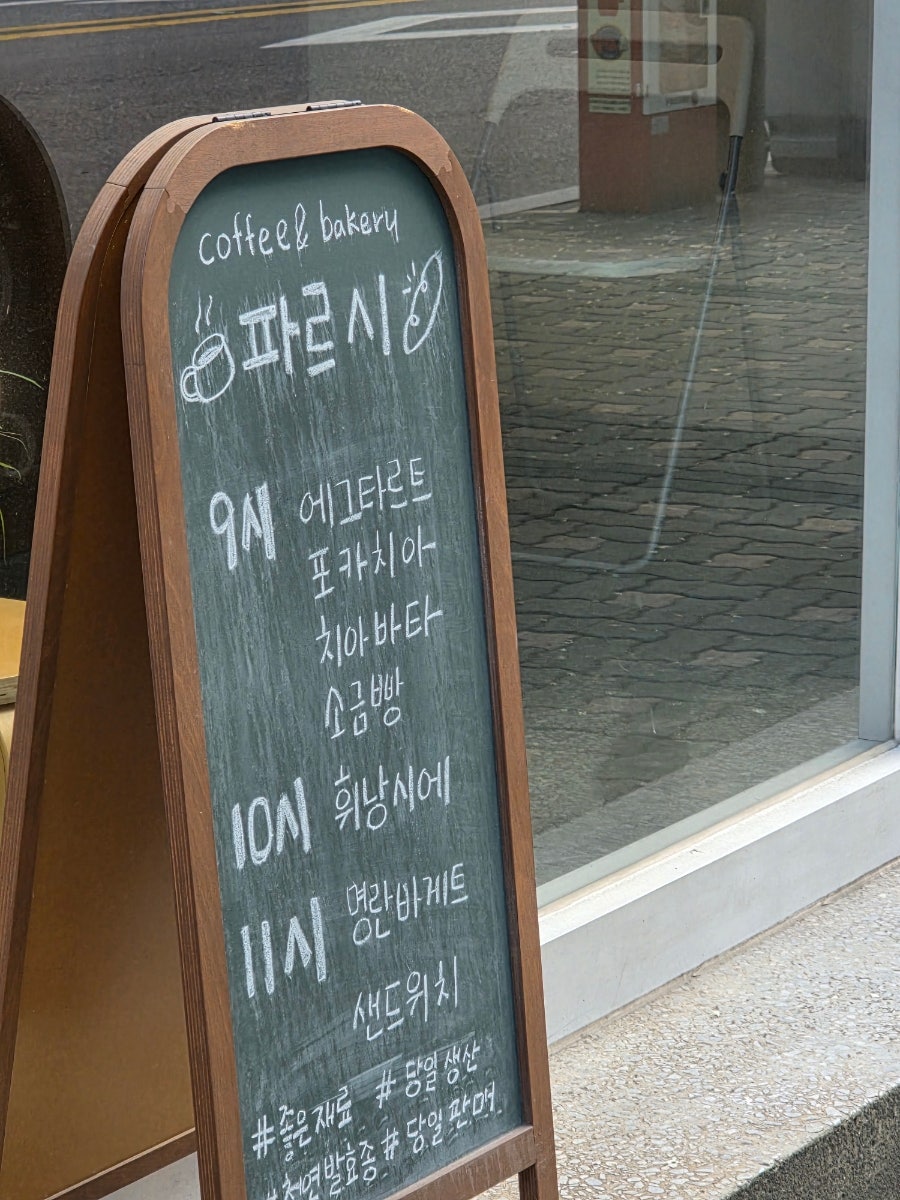 coffee& bakery
파르시
9시 에그타르트
포카치아
치아바타
소금빵
10시 휘낭시에
11시 명란바게트
샌드위치
#좋은재료 #당일생산
#천연발효종 #당일판매